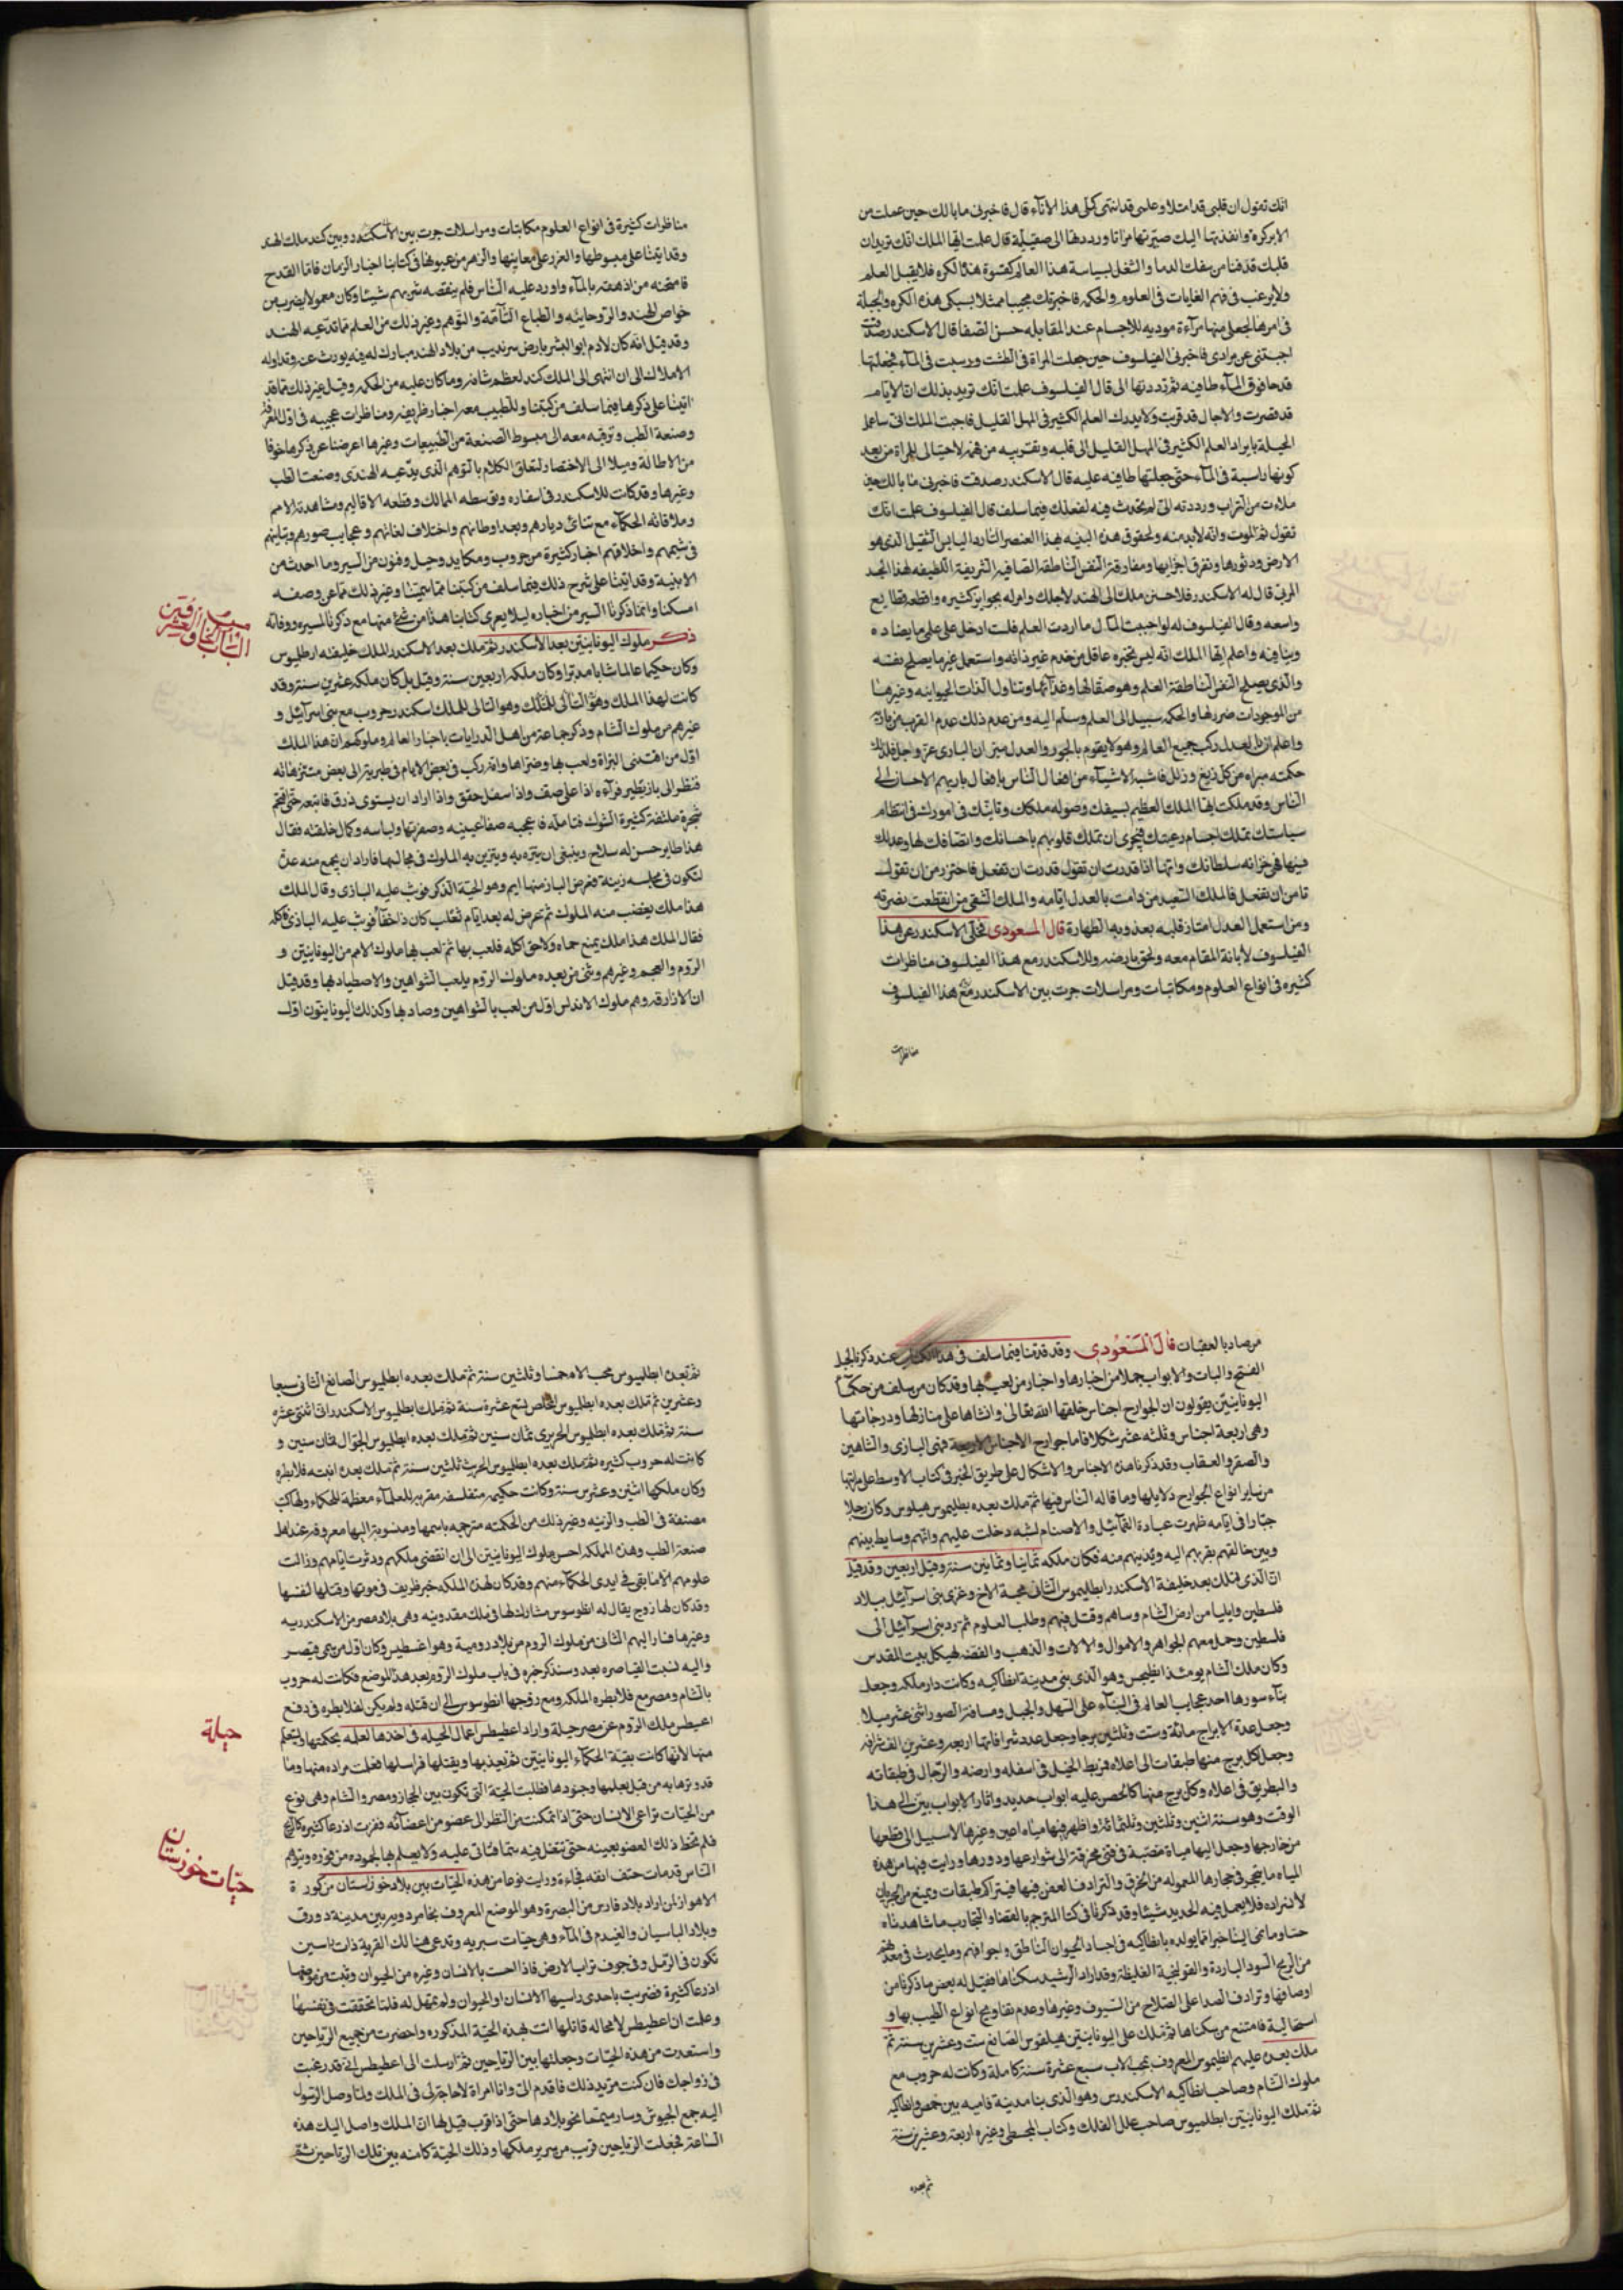 انك تقول ان قلبى قد امتلا وعلمى قد انتهى كملى هذا الاناء قال فاخبرنى ما بالك حين عملت من
الابر كرة وانفذتها اليك صيرتها مرآتا ورددتها الى صقيلة قال علمت ايها الملك انك تريد ان
قلبك قد قسا من سفك الدما والشغل بسياسة هذا العالم كقسوة هذه الكره فلا يقبل العلم
ولا يرغب فى فهم الغايات فى العلوم والحكمه فاخبرتك مجيبا ممثلا بسبكى هذه الكره والحيلة
فى امرها لجعلى منها مرآءة موديه للاجسام عند المقابله حسن الصفا قال الاسكندر صدقت
اجبتنى عن مرادى فاخبرنى ايها الفيلسوف حين جعلت المراة فى الطشت ورسبت فى الماء فجعلتها
قدحا فوق الماء طافيه ثم رددتها الى قال الفيلسوف علمت انك تريد بذلك ان الايام
قد قصرت والاجال قد قربت ولا يدرك العلم الكثير فى المهل القليل فاجبت الملك انى ساعمل
الحيلة بايراد العلم الكثير فى المهل القليل الى قلبه وتقريبه من فهمه لاحتيالى للمراة من بعد
كونها راسبة فى الماء حتى جعلتها طافيه عليه قال الاسكندر صدقت فاخبرنى ما بالك حين
ملات من التراب ورددته الى لم تحدث فيه لفعلك فيما سلف قال الفيلسوف علمت انك
تقول ثم الموت وانه لابد منه ولحوق هذه البنيه بهذا العنصر البارد اليابس الثقيل الذى هو
الارض ودثورها وتفرق اجزايها ومفارقة النفس الناطقه الصافيه الشريفة اللطيفه لهذا الجسد
المرئى قال له الاسكندر فلاحسنن ملك الى الهند لاجلك وامر له بجوايز كثيره واقطعه قطايع
واسعه وقال الفيلسوف له لو احببت المال لما اردت العلم فلست ادخل على علمى ما يضاده
وينافيه واعلم ايها الملك انه ليس بخبره عاقل من خدم غير ذاته واستعمل غير ما يصلح نفسه
والذى يصلح النفس الناطقة العلم وهو صقالها وغذآئها وتناول اللذات الحيوانيه وغيرها
من الموجودات ضرر لها والحكمه سبيل الى العلم وسلم اليه ومن عدم ذلك عدم القربه من بارئه
واعلم ان بالعدل ركب جميع العالم وهو لا يقوم بالجور والعدل ميزان البارى عز وجل فلذلك
حكمته مبراه من كل زيغ وزلل فاشبه الاشيآء من افعال الناس بافعال باريهم الاحسان الى
الناس وقد ملكت ايها الملك العظيم بسيفك وصوله ملكك وتانيك فى امورك فى انتظام
سياستك تملك اجسام رعيتك فتحرى ان تملك قلوبهم باحسانك وانصافك لها وعدلك
فيها هى خزانه سلطانك وانها اذا قدرت ان تقول قدرت ان تفعل فاحترز من ان تقول
تامن ان تفعل فالملك السعيد من دامت بالعدل ايامه والملك الشقى من انقطعت بضرته
ومن استعمل العدل امتاز قلبه بعذوبة الطهارة قال المسعودى فخلى الاسكندر عن هذا
الفيلسوف لابانة المقام معه ولحق بارضه وللاسكندر مع هذا الفيلسوف مناظرات
كثيره فى انواع العلوم ومكاتبات ومراسلات جرت بين الاسكندر مع هذا الفيلسوف
مناظرات
مناظرات كثيرة فى انواع العلوم مكاتبات ومراسلات جرت بين الاسكندر وبين كند ملك الهند
وقد اتينا على مبسوطها والغرر على معاينها والزهر من عيونها فى كتابنا اخبار الزمان فاما القدح
فامتحنه من ادهقه بالمآء واورد عليه الناس فلم ينقصه شربهم شيئا وكان معمولا بضرب من
خواص الهند والروحانيه والطباع التآمة والتوهم وغير ذلك من العلم مما تدعيه الهند
وقد قيل انه كان لادم ابو البشر بارض سرنديب من بلاد الهند مبارك له فيه يورث عنه وتداوله
الاملاك الى ان انتهى الى الملك كند لعظم شانه وما كان عليه من الحكمه وقيل غير ذلك مما قد
اتينا على ذكرها فيما سلف من كتبنا وللطبيب معه اخبار ظريفه ومناظرات عجيبه فى اول المعرفة
وصنعة الطب وترقيه معه الى مبسوط الصنعة من الطبيعيات وغيرها اعرضنا عن ذكرها خوفا
من الاطالة وميلا الى الاختصار لتعلق الكلام بالتوهم الذى يدعيه الهندى وصنعت الطب
وغيرها وقد كانت للاسكندر فى اسفاره وتوسطه الممالك وقطعه الاقاليم ومشاهدته الامم
وملاقاته الحكمآء مع تنائى ديارهم وبعد اوطانهم واختلاف لغاتهم وعجايب صورهم وتباينهم
فى شيمهم واخلاقهم اخبار كثيرة من حروب ومكايد وحيل وفنون من السير وما احدث من
الابنية وقد اتينا على شرح ذلك فيما سلف من كتبنا مما سمينا وغير ذلك مما عن وصفه
امسكنا وانما ذكرنا اليسير من اخباره ليلا يعرى كتابنا هذا من شئ منها مع ذكرنا لمسيره ووفاته
ذكر ملوك اليونانيين بعد الاسكندر ثم ملك بعد الاسكندر الملك خليفته ابطليوس
وكان حكيما عالما شابا مدبرا وكان ملكه اربعين سنة وقيل بل كان ملكه عشرين سنة وقد
كانت لهذا الملك وهو الثانى للملك وهو التالى للملك اسكندر حروب مع بنى اسرآئيل و
غيرهم من ملوك الشام وذكر جماعة من اهل الدرايات باخبار العالم وملوكهم ان هذا الملك
اول من اقتنى البزاة ولعب بها وضراها وانه ركب فى بعض الايام فى طبرية الى بعض متنزهاته
فنظر الى باز يطير فرآءه اذا علا صف واذا سفل خفق واذا اراد ان يستوى ذرق فاتبعه حتى اقتحم
شجرة ملتفة كثيرة الشوك فتامله فاعجبه صفا عينيه وصفرتها ولباسه وكمال خلقته فقال
هذا طاير حسن له سلاح وينبغى ان يتنزه به ويتزين به الملوك فى مجالسها فاراد ان يجمع منه عدة
لتكون فى مجلسه زينة فعرض الباز منها ايم وهو الحية الذكر فوثب عليه البازى وقال الملك
هذا ملك يغضب منه الملوك ثم تعرض له بعد ايام ثعلب كان داخقا فوثب عليه البازى فاكله
فقال الملك هذا ملك يمنع حماه ولاحق اكله فلعب بها ثم لعب بها ملوك الامم من اليونانيين و
الروم والعجم وغيرهم وثنى من بعده ملوك الروم بلعب الشواهين والاصطياد بها وقد قيل
ان الازارقه وهم ملوك الاندلس اول من لعب بالشواهين وصاد بها وكذلك اليونانيون اول
من صاد بالعقبان قال المسعودى وقد قدمنا فيما سلف فى هذا الكتاب عند ذكرنا لجبل
الفتح والباب والابواب جملا من اخبارها واخبار من لعب بها وقد كان من سلف من حكمآ
اليونانيين يقولون ان الجوارح اجناس خلقها الله تعالى وانشاها على منازلها ودرجاتها
وهى اربعة اجناس وثلثه عشر شكلا فاما جوارح الاجناس الاربعة فهى البازى والشاهين
والصقر والعقاب وقد ذكرنا هذه الاجناس والاشكال على طريق الخبر فى كتاب الاوسط على مراتبها
من ساير انواع الجوارح دلايلها وما قاله الناس فيها ثم ملك بعده بطليموس هيلوس وكان رجلا
جبارا فى ايامه ظهرت عبادة التماثيل والاصنام لشبه دخلت عليهم وانهم وسايط بينهم
وبين خالقهم تقربهم اليه وتدنيهم منه فكان ملكه ثمانيا وثمانين سنة وقيل اربعين وقد قيل
ان الذى ملك بعد خليفة الاسكندر ابطليموس الثانى محبة الاخ وغزى بنى اسرآئيل ببلاد
فلسطين وايليا من ارض الشام وسباهم وقتل فيهم وطلب العلوم ثم رد بنى اسرآئيل الى
فلسطين وحمل معهم الجواهر والاموال والالات والذهب والفضه لهيكل بيت المقدس
وكان ملك الشام يومئذ ابطيخس وهو الذى بنى مدينة انطاكيه وكانت دار ملكه وجعل
بنآء سورها احد عجايب العالم فى البنآء على السهل والجبل ومسافة السور اثنى عشر ميلا
وجعل عدة الابراج مائة وست وثلثين برجا وجعل عدد شرافاتها اربعه وعشرين الف شرافه
وجعل كل برج منها طبقات الى اعلاه فربط الخيل فى اسفله وارضه والرجال فى طبقاته
والبطريق فى اعلاه وكل برج منها كالحصن عليه ابواب حديد واثار الابواب بين الى هذا
الوقت وهو سنة اثنين وثلثين وثلثمائة واظهر فيها مياه اعين وغيرها لا سبيل الى قطعها
من خارجها وجعل اليها مياه منصبة فى قنى مخرقة الى شوارعها ودورها ورايت فيها من هذه
المياه ما يتحجر فى مجاريها المعموله من الخزف والترادف البعض فيها فيتراكم طبقات ويمنع من الجريان
لانسداده فلا يعمل فيه الحديد شيئا وقد ذكرنا فى كتابنا المترجم بالقضاو التجارب ما شاهدناه
حسا وما نمى الينا خبرا مما يولده بانطاكيه فى اجساد الحيوان الناطق واجوافهم وما يحدث فى معدهم
من الريح السوداء الباردة والقولنجية الغليظة وقد اراد الرشيد سكناها فقيل له بعض ما ذكرنا من
اوصافها وترادف الصدا على السلاح من السيوف وغيرها وعدم بقا ريح انواع الطيب بها و
استحالية فامتنع من سكناها ثم ملك على اليونانيين هيلفوس الصانع ست وعشرين سنة ثم
ملك بعده عليهم ابطليموس المعروف بمحب الاب سبع عشرة سنة كاملة وكانت له حروب مع
ملوك الشام وصاحب انطاكيه الاسكندرس وهو الذى بنا مدينة فاميه بين حمص وانطاكيه
ثم ملك اليونانيين ابطلميوس صاحب علل الفلك وكتاب المجسطى وغيره اربعة وعشرين سنة
ثم بعده
ثم بعده ابطليوس محب الام خمسا وثلثين سنة ثم ملك بعده ابطليوس الصانع الثانى سبعا
وعشرين ثم ملك بعده ابطليوس المخلص تسع عشرة سنة ثم ملك ابطليوس الاسكندرانى اثنتى عشره
سنة ثم ملك بعده ابطليوس الحريرى ثمان سنين ثم ملك بعده ابطليوس الجوال ثمان سنين و
كانت له حروب كثيره ثم ملك بعده ابطليوس الحريث ثلثين سنة ثم ملك بعده ابنته فلابطره
وكان ملكها اثنين وعشرين سنة وكانت حكيمه متفلسفه مقربه للعلمآء معظمة للحكماء ولها كتب
مصنفة فى الطب والزينه وغير ذلك من الحكمته مترجمه باسمها ومنسوبة اليها معروفه عند اهل
صنعة الطب وهذه الملكه اخر ملوك اليونانيين الى ان انقضى ملكهم ودثرت ايامهم وزالت
علومهم الا ما بقى فى ايدى الحكمآء منهم وقد كان لهذه الملكه خبر ظريف فى موتها وقتلها لنفسها
وقد كان لها زوج يقال له انطوسوس مشارك لها فى ملك مقدونيه وهى بلاد مصر من الاسكندريه
وغيرها فسار اليهم الثانى من ملوك الروم من بلاد رومية وهو اغسطيس وكان اول من سمى قيصر
واليه تنسب القياصره بعد وسنذكر خبره فى باب ملوك الروم بعد هذا الموضع فكانت له حروب
بالشام ومصر مع فلابطره الملكه ومع زوجها انطوسوس الى ان قتله ولم يكن لفلابطره فى دفع
اعيطس ملك الروم عن مصر حيلة واراد اعطيطس اعمال الحيله فى اخذها لعلمه بحكمتها وليتعلم
منها لانها كانت بقية الحكمآء اليونانيين ثم تعذبها ويقتلها فراسلها فعلمت مراده منها وما
قد وترها به من قبل بعلمها وجنودها فطلبت الحية التى تكون بين الحجاز ومصر والشام وهى نوع
من الحيات تراعى الانسان حتى اذا تمكنت من النظر الى عضو من اعضآئه قفزت اذرعا كثيره كالرمح
فلم تخط ذلك العضو بعينه حتى تتفل فيه سما فتاتى عليه ولا يعلم بها لجموده من فوره ويتوهم
الناس قد مات حتف انفه فجاءة ورايت نوعا من هذه الحيات بين بلاد خوزستان من كورة
الاهواز لمن اراد بلاد فارس من البصرة وهو الموضع المعروف بخامردويه بين مدينة دورق
وبلاد الباسيان والفندم فى المآء وهى حيات شبريه وتدعى هنالك القريه ذات راسين
تكون فى الرمل وفى جوف تراب الارض فاذا احست بالانسان وغيره من الحيوان وثبت من موضعها
اذرعا كثيرة فضربت باحدى راسيها الانسان او الحيوان ولم تمهل له فلما تحققت فى نفسها
وعلمت ان اعطيطس لامحاله قاتلها اتت بهذه الحية المذكوره واحضرت من جميع الرياحين
واستعدت من هذه الحيات وجعلتها بين الرياحين ثم ارسلت الى اعطيطس انى قد رغبت
فى زواجك فان كنت مزيد ذلك فاقدم الى وانا امراة لا حاجة لى فى الملك ولما وصل الرسول
اليه جمع الجيوش وسار ميمما نحو بلادها حتى اذا قرب قيل لها ان الملك واصل اليك هذه
الساعة فجعلت الرياحين قريب من سرير ملكها وذلك الحية كامنه بين تلك الرياحين ثم
حيلة
حيات خوزستان